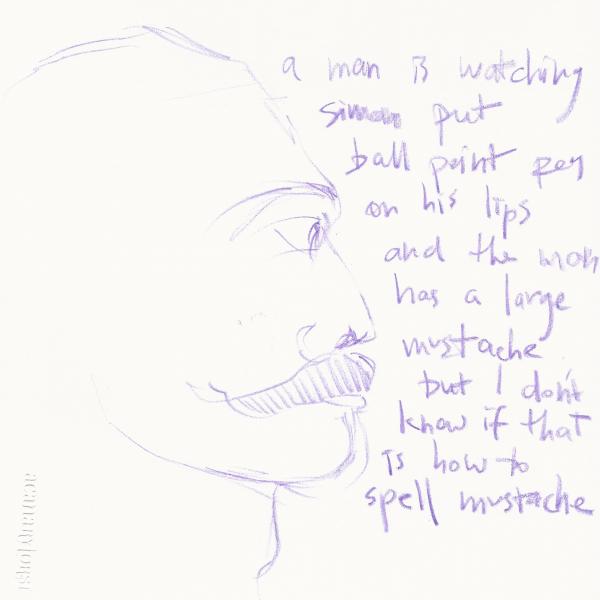 a man is watching
simon put
ball point pen
on his lips
and the man
has a large
mustache
but I don't
know if that
is how to
spell mustache